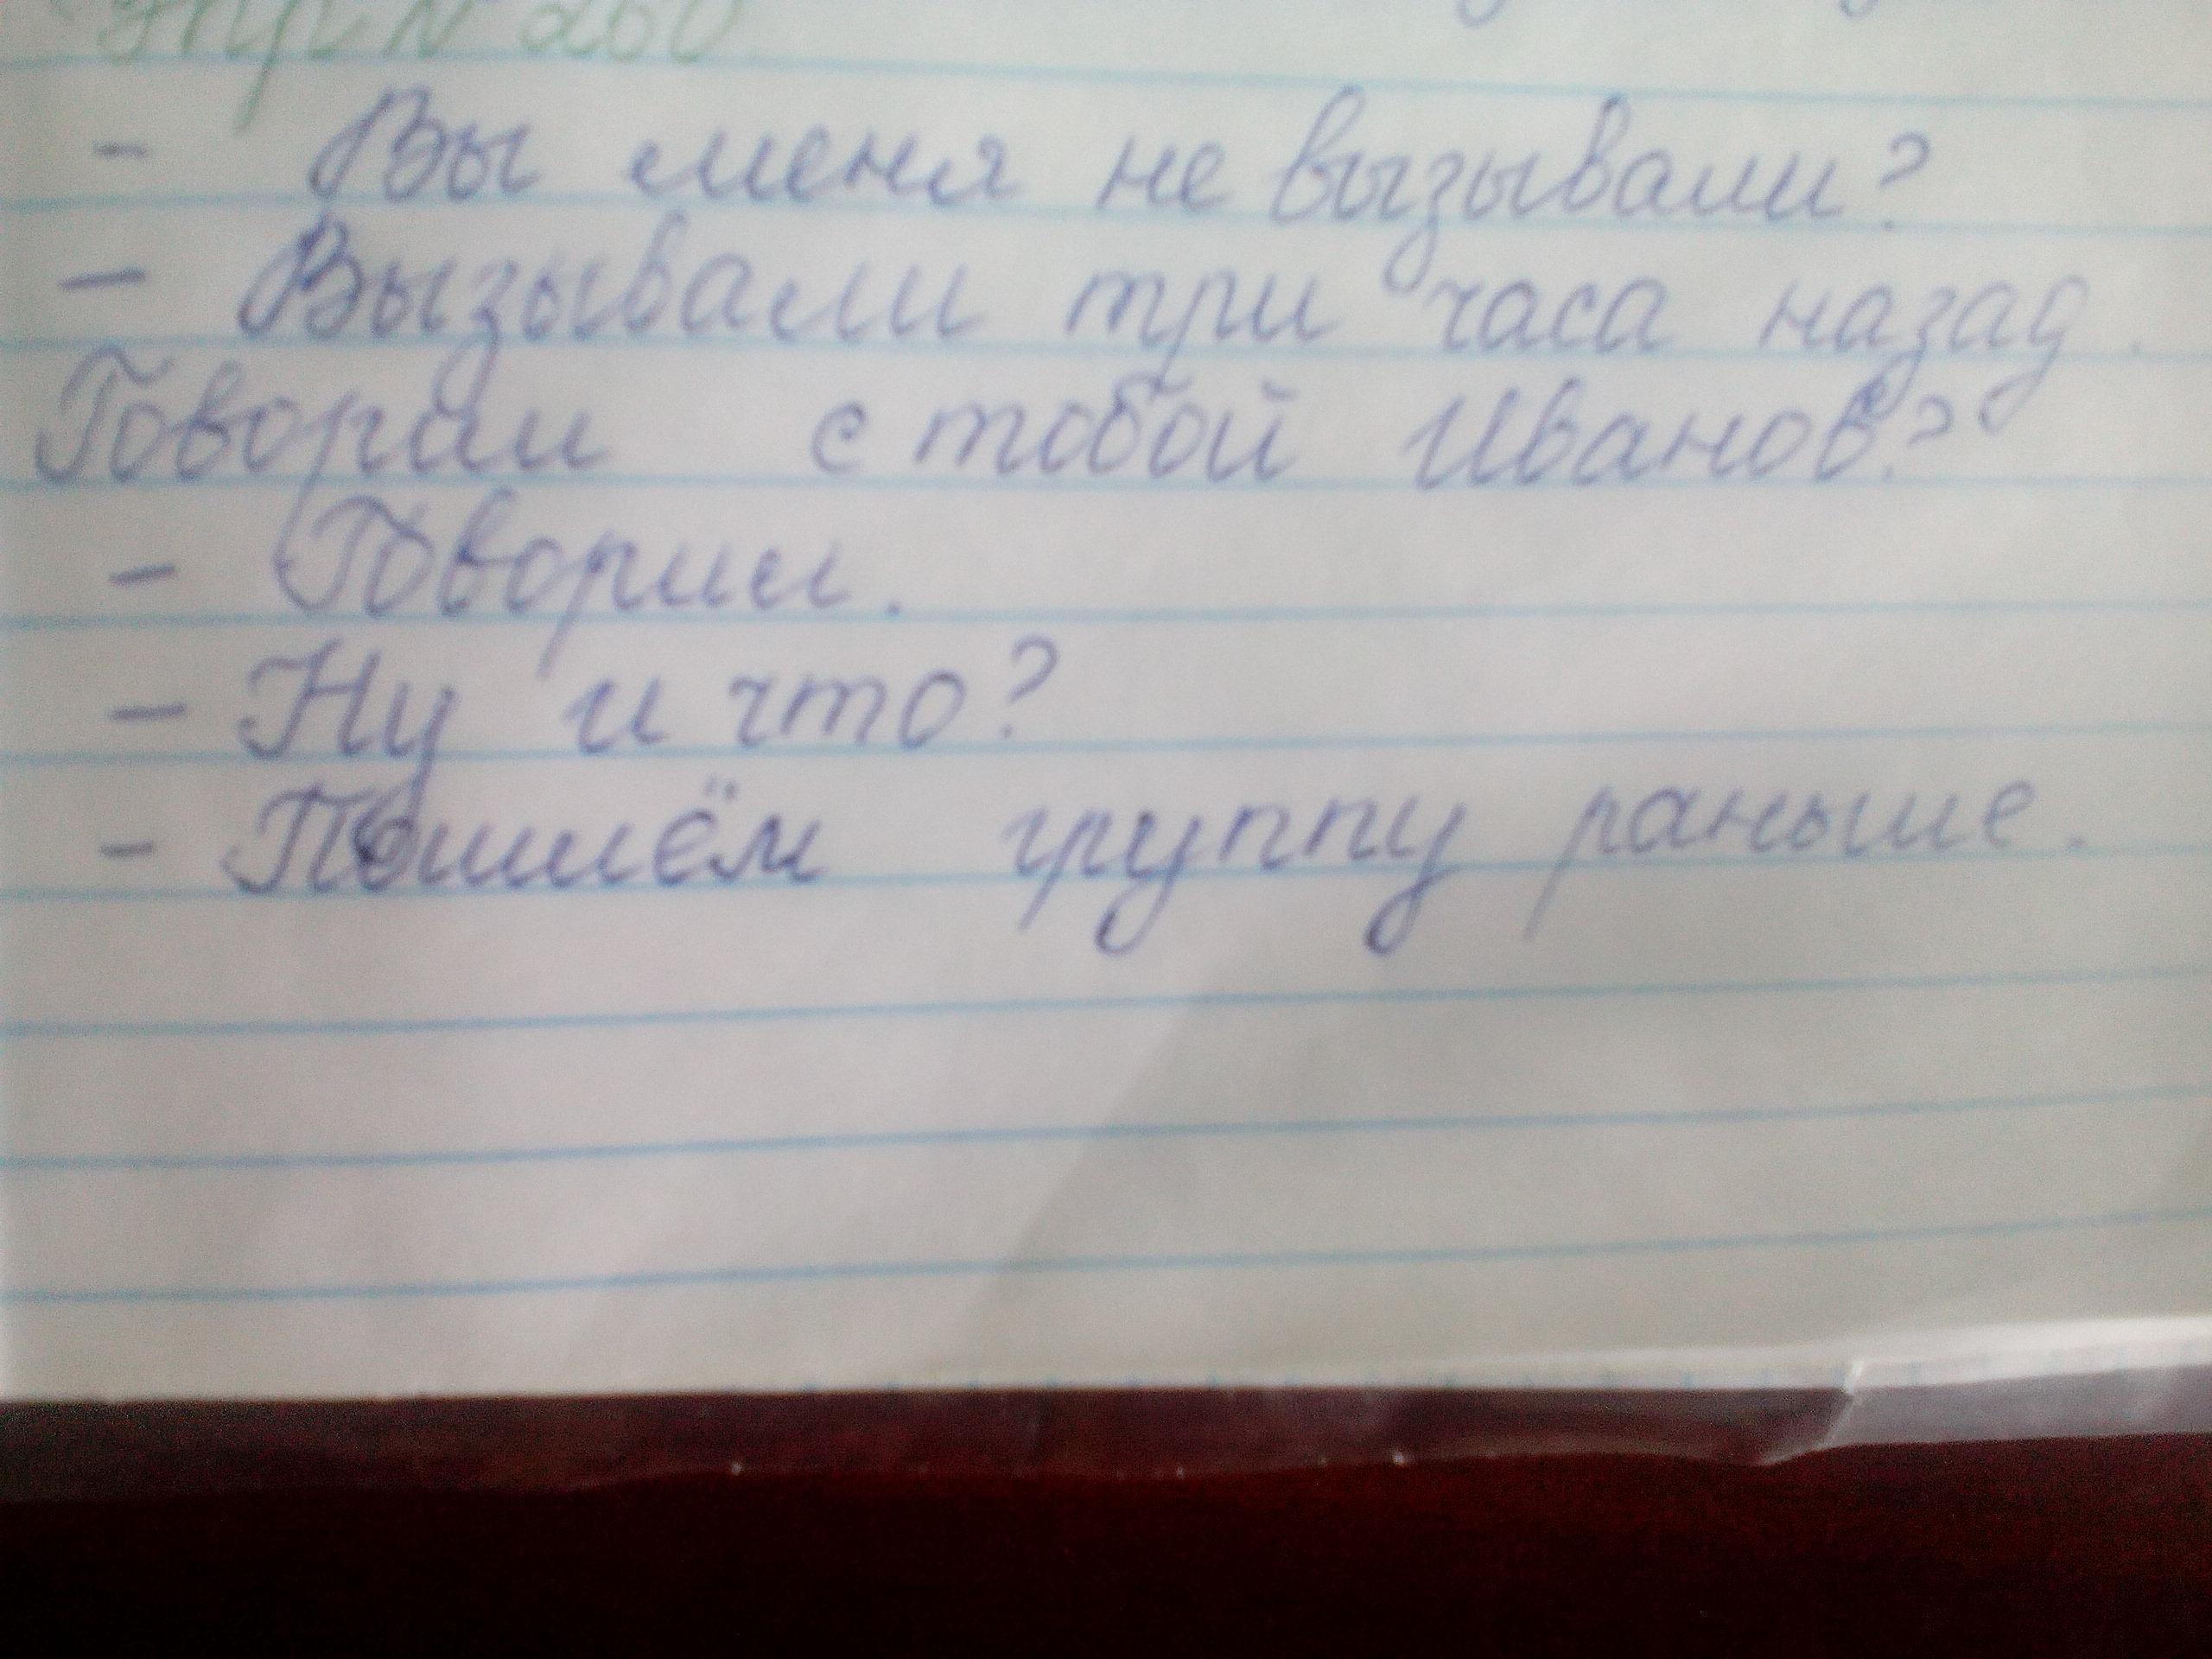 Упр N 260
- Вы меня не вызывали?
- Вызывали три часа назад.
Говорил с тобой Иванов?
- Говорил.
- Ну и что?
- Пошлём группу раньше.